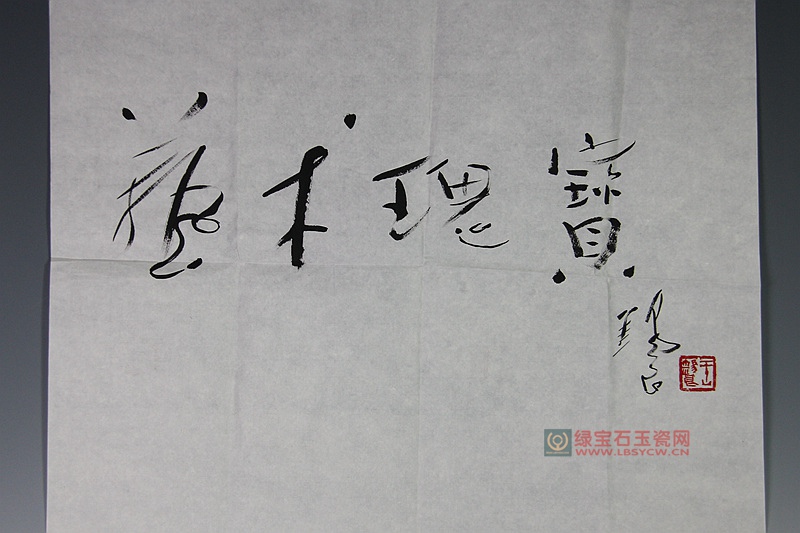 藝术瑰寶
绿宝石玉瓷网
WWW.LBSYCW.CN